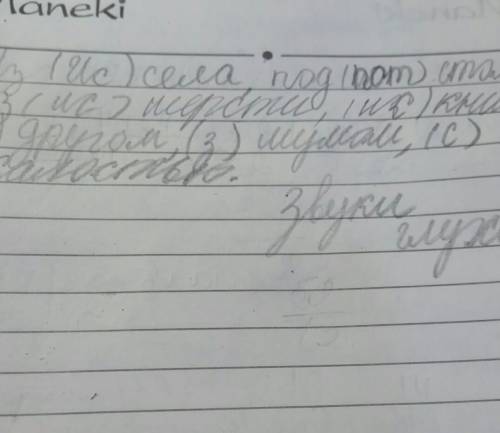 Maneki
из (Ис) села, под (пот) стол
з (ис) шерсти, (ис) кни
другом, (з) мумом, (с)
жалостью.
звуки
глух